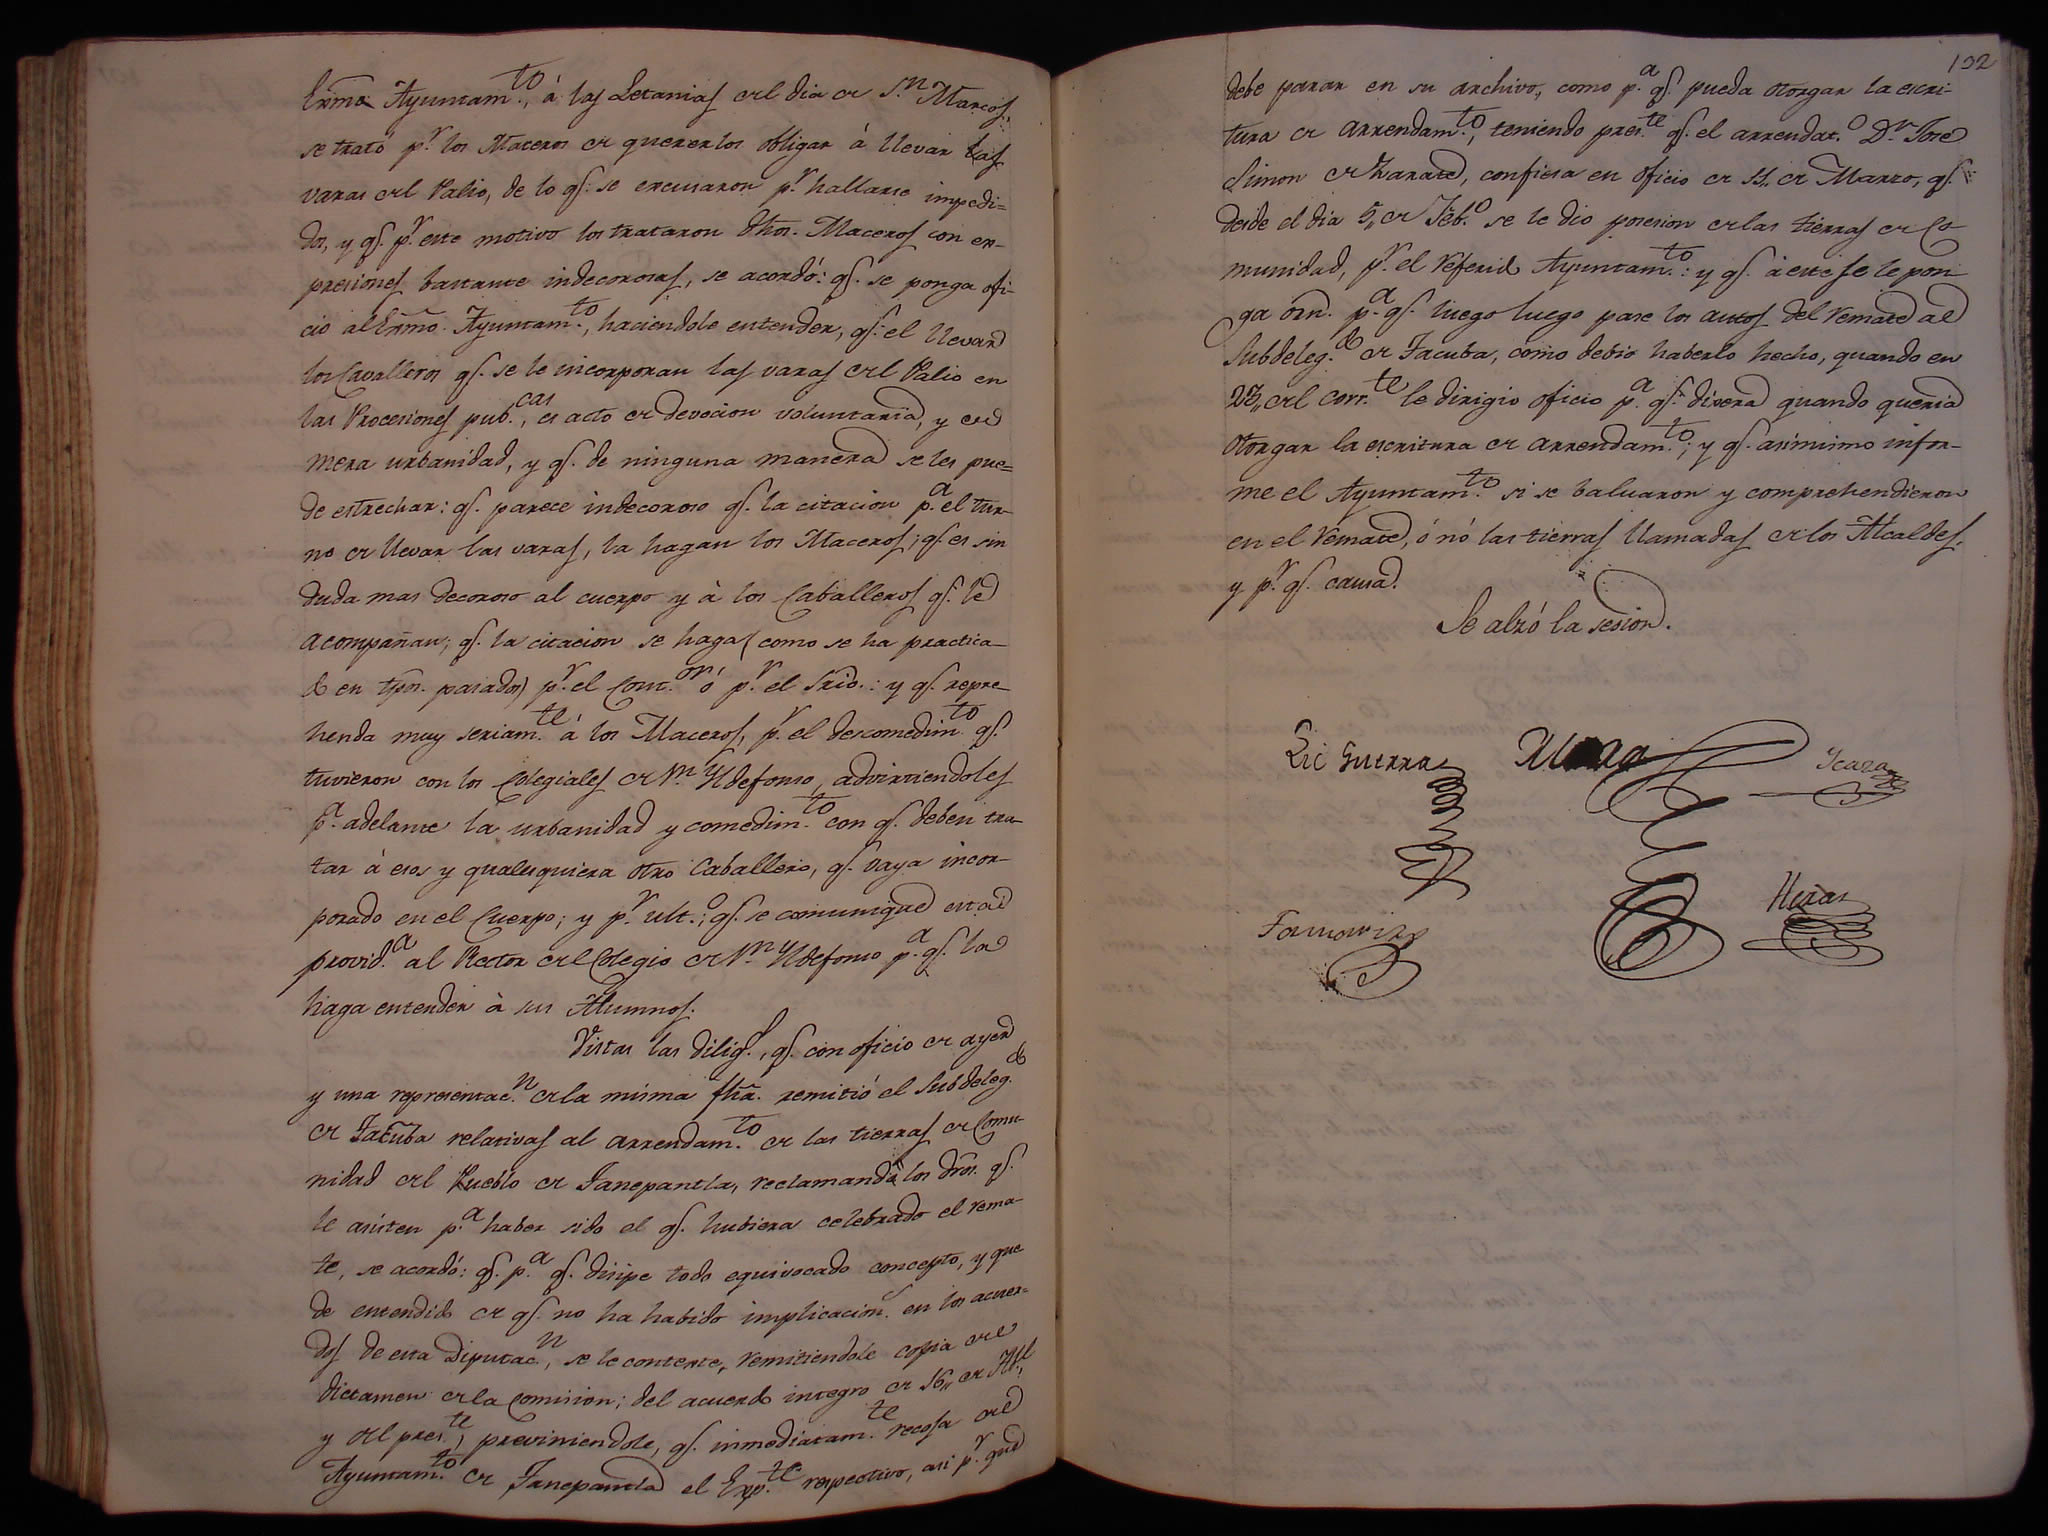 Exmo Ayuntam.to, á las Letanias del dia de S.n Marcos,
se trató p.r los Maceros de quererlos obligar á llevar las
varas del Palio, de lo q.e se excusaron p.r hallarse impedi=
dos, y q.e p.r este motivo los trataron dhos. Maceros con ex-
presiones bastante indecorosas, se acordó: q.e se ponga ofi-
cio al Exmo. Ayuntam.to, haciendole entender, q.e el llevar
los Cavalleros q.e se le incorporan las varas del Palio en
las Procesiones pub.cas, es acto de devocion voluntaria, y de
mera urbanidad, y q.e de ninguna manera se les pue=
de estrechar: q.e parece indecoroso q.e la citacion p.a el tur-
no de llevar las varas, la hagan los Maceros; q.e es sin
duda mas decoroso al cuerpo y à los Caballeros q.e le
acompañan; q.e la citacion se haga (como se ha practica-
do en tpos. pasados) p.r el Cont.or ó p.r el Srio.: y q.e repre-
henda muy seriam.te á los Maceros, p.r el descomedim.to q.e
tuvieron con los Colegiales de S.n Yldefonso, advirtiendoles
p.a adelante la urbanidad y comedim.to con q.e deben tra-
tar á esos y qualesquiera otro Caballero, q.e vaya incor-
porado en el Cuerpo; y p.r ult.o; q.e se comunique esta
provid.a al Rector del Colegio de S.n Yldefonso p.a q.e la
haga entender à sus Alumnos.
Vistas las dilig.s, q.e con oficio de ayer
y una representac.n de la misma fha. remitió el Subdeleg.do
de Tacuba relativas al arrendam.to de las tierras de Comu-
nidad del Pueblo de Tanepantla, reclamando los dros. q.e
le asisten p.a haber sido el q.e hubiera celebrado el rema-
te, se acordó: q.e p.a q.e disipe todo equivocado concepto, y que
de entendido de q.e no ha habido implicacion en los acuer=
dos de esta Diputac.n, se le conteste, remitiendole copia del
dictamen de la Comision; del acuerdo integro de 16,, de Ab.l,
y del pres.te, previniendole, q.e inmediatam.te recoja del
Ayuntam.to de Tanepantla el Exp.te respectivo, asi p.r que
102
debe parar en su archivo, como p.a q.e pueda otorgar la escri-
tura de arrendam.to, teniendo pres.te q.e el arrendat.o D.n Jose
Simon de Zarate, confiesa en oficio de 11,, de Marzo, q.e
desde el dia 5,, de Feb.o se le dio posesion de las tierras de Co
munidad, p.r el referido Ayuntam.to: y q.e à este se le pon
ga orn. p.a q.e luego luego pase los autos del remate al
Subdeleg.do de Tacuba, como debió haberlo hecho, quando en
23,, del corr.te le dirigio oficio p.a q.e dixera quando queria
otorgar la escritura de arrendam.to; y q.e asimismo infor-
me el Ayuntam.to si se baluaron y comprehendieron
en el remate, ó nó las tierras llamadas de los Alcaldes,
y p.r q.e causa.
Se alzó la sesion.
Lic Guerra
Ycaza
Heras